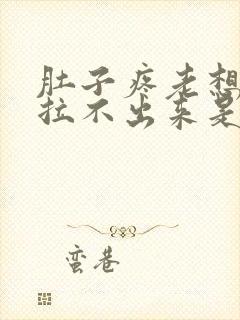 肚子疼老想
拉不出来是
蛮巷